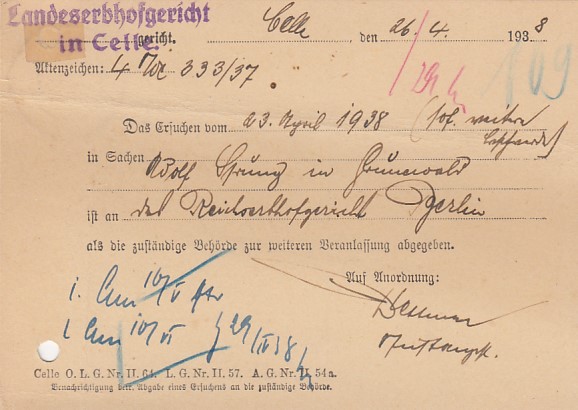 Landeserbhofgericht
in Celle.
gericht.
Celle den 26. 4. 1938
Aktenzeichen: 4 333/37
29/4
109
Das Ersuchen vom 23. April 1938 (sof. weitere
in Sachen Adolf Strunz in Grunewald
ist an das Reichserbhofgericht Berlin
als die zuständige Behörde zur weiteren Veranlassung abgegeben.
Auf Anordnung:
1.
10/V
10/VI 29/IV 38
Justizangest.
Celle O. L. G. Nr. II. 64. L. G. Nr. II. 57. A. G. Nr. 54a.
Benachrichtigung betr. Abgabe eines Ersuchens an die zuständige Behörde.